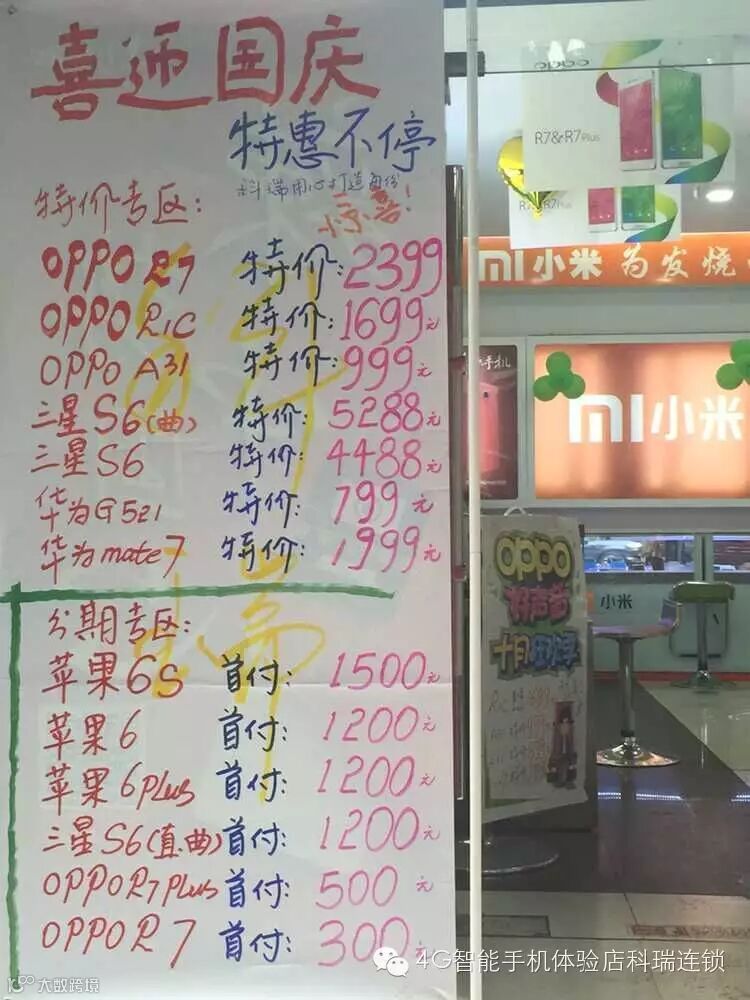 喜迎国庆
特惠不停
科瑞用心打造每份
惊喜!
特价专区:
OPPO R7 特价:2399
OPPO R1C 特价:1699元
OPPO A31 特价:999元
三星S6(曲) 特价:5288元
三星S6 特价:4488元
华为G521 特价:799元
华为mate7 特价:1999元
分期专区:
苹果6S 首付:1500元
苹果6 首付:1200元
苹果6plus 首付:1200元
三星S6(直.曲) 首付:1200元
OPPO R7Plus 首付:500元
OPPO R7 首付:300元
oppo
R7&R7Plus
mi小米 为发烧
手机
mi小米
小米
OPPO
好声音
十月狂欢季
4G智能手机体验店科瑞连锁
大数跨境